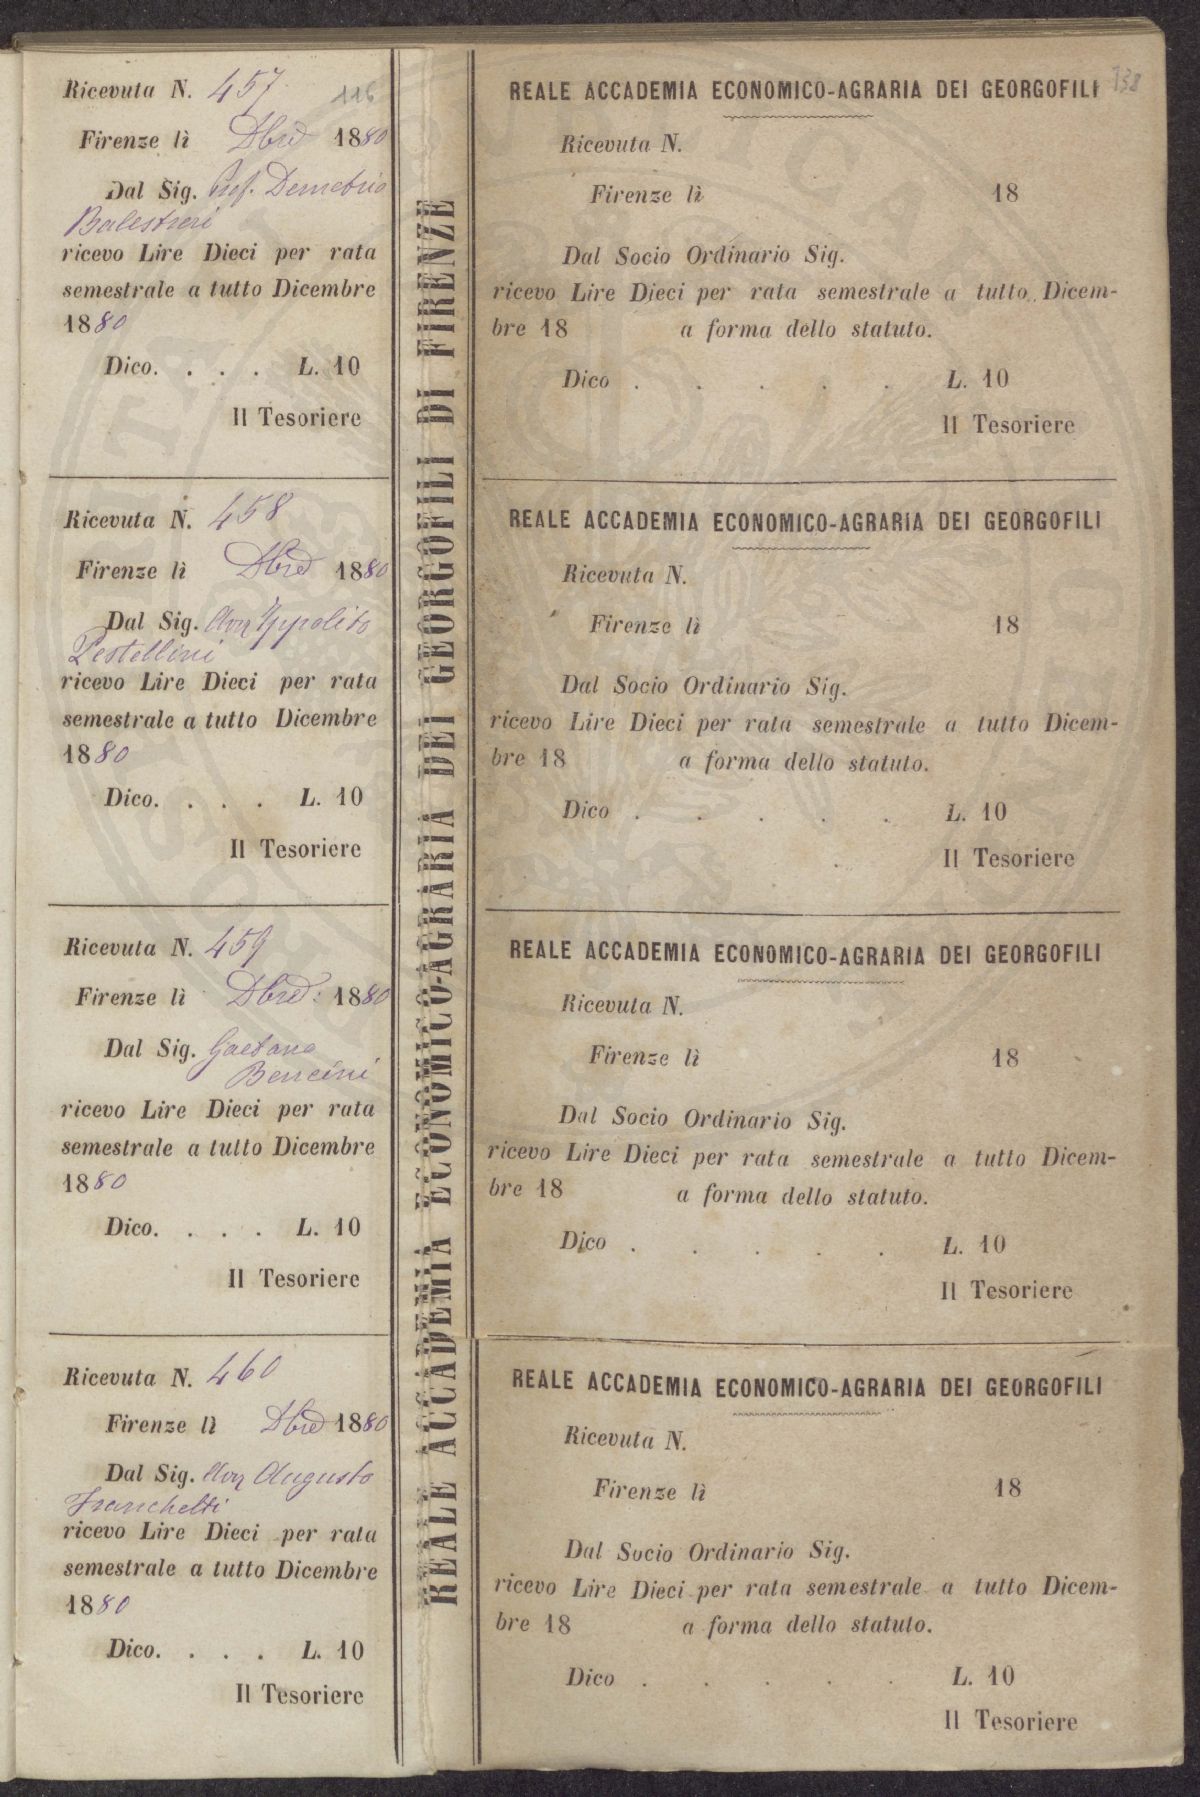 Ricevuta N. 457
116
Firenze lì Dbre 1880
Dal Sig. Prof. Demetrio
Balestreri
ricevo Lire Dieci per rata
semestrale a tutto Dicembre
1880
Dico. . . . L. 10
Il Tesoriere
Ricevuta N. 458
Firenze lì Dbre 1880
Dal Sig. Avv Yppolito
Pestellini
ricevo Lire Dieci per rata
semestrale a tutto Dicembre
1880
Dico. . . . L. 10
Il Tesoriere
Ricevuta N. 459
Firenze lì Dbre: 1880
Dal Sig. Gaetano
Bencini
ricevo Lire Dieci per rata
semestrale a tutto Dicembre
1880
Dico. . . . L. 10
Il Tesoriere
Ricevuta N. 460
Firenze lì Dbre 1880
Dal Sig. Avv Augusto
Franchetti
ricevo Lire Dieci per rata
semestrale a tutto Dicembre
1880
Dico. . . . L. 10
Il Tesoriere
REALE ACCADEMIA ECONOMICO-AGRARIA DEI GEORGOFILI DI FIRENZE
REALE ACCADEMIA ECONOMICO-AGRARIA DEI GEORGOFILI
138
Ricevuta N.
Firenze lì 18
Dal Socio Ordinario Sig.
ricevo Lire Dieci per rata semestrale a tutto Dicem-
bre 18 a forma dello statuto.
Dico . . . . . L. 10
Il Tesoriere
REALE ACCADEMIA ECONOMICO-AGRARIA DEI GEORGOFILI
Ricevuta N.
Firenze lì 18
Dal Socio Ordinario Sig.
ricevo Lire Dieci per rata semestrale a tutto Dicem-
bre 18 a forma dello statuto.
Dico . . . . . L. 10
Il Tesoriere
REALE ACCADEMIA ECONOMICO-AGRARIA DEI GEORGOFILI
Ricevuta N.
Firenze lì 18
Dal Socio Ordinario Sig.
ricevo Lire Dieci per rata semestrale a tutto Dicem-
bre 18 a forma dello statuto.
Dico . . . . . L. 10
Il Tesoriere
REALE ACCADEMIA ECONOMICO-AGRARIA DEI GEORGOFILI
Ricevuta N.
Firenze lì 18
Dal Socio Ordinario Sig.
ricevo Lire Dieci per rata semestrale a tutto Dicem-
bre 18 a forma dello statuto.
Dico . . . . . L. 10
Il Tesoriere